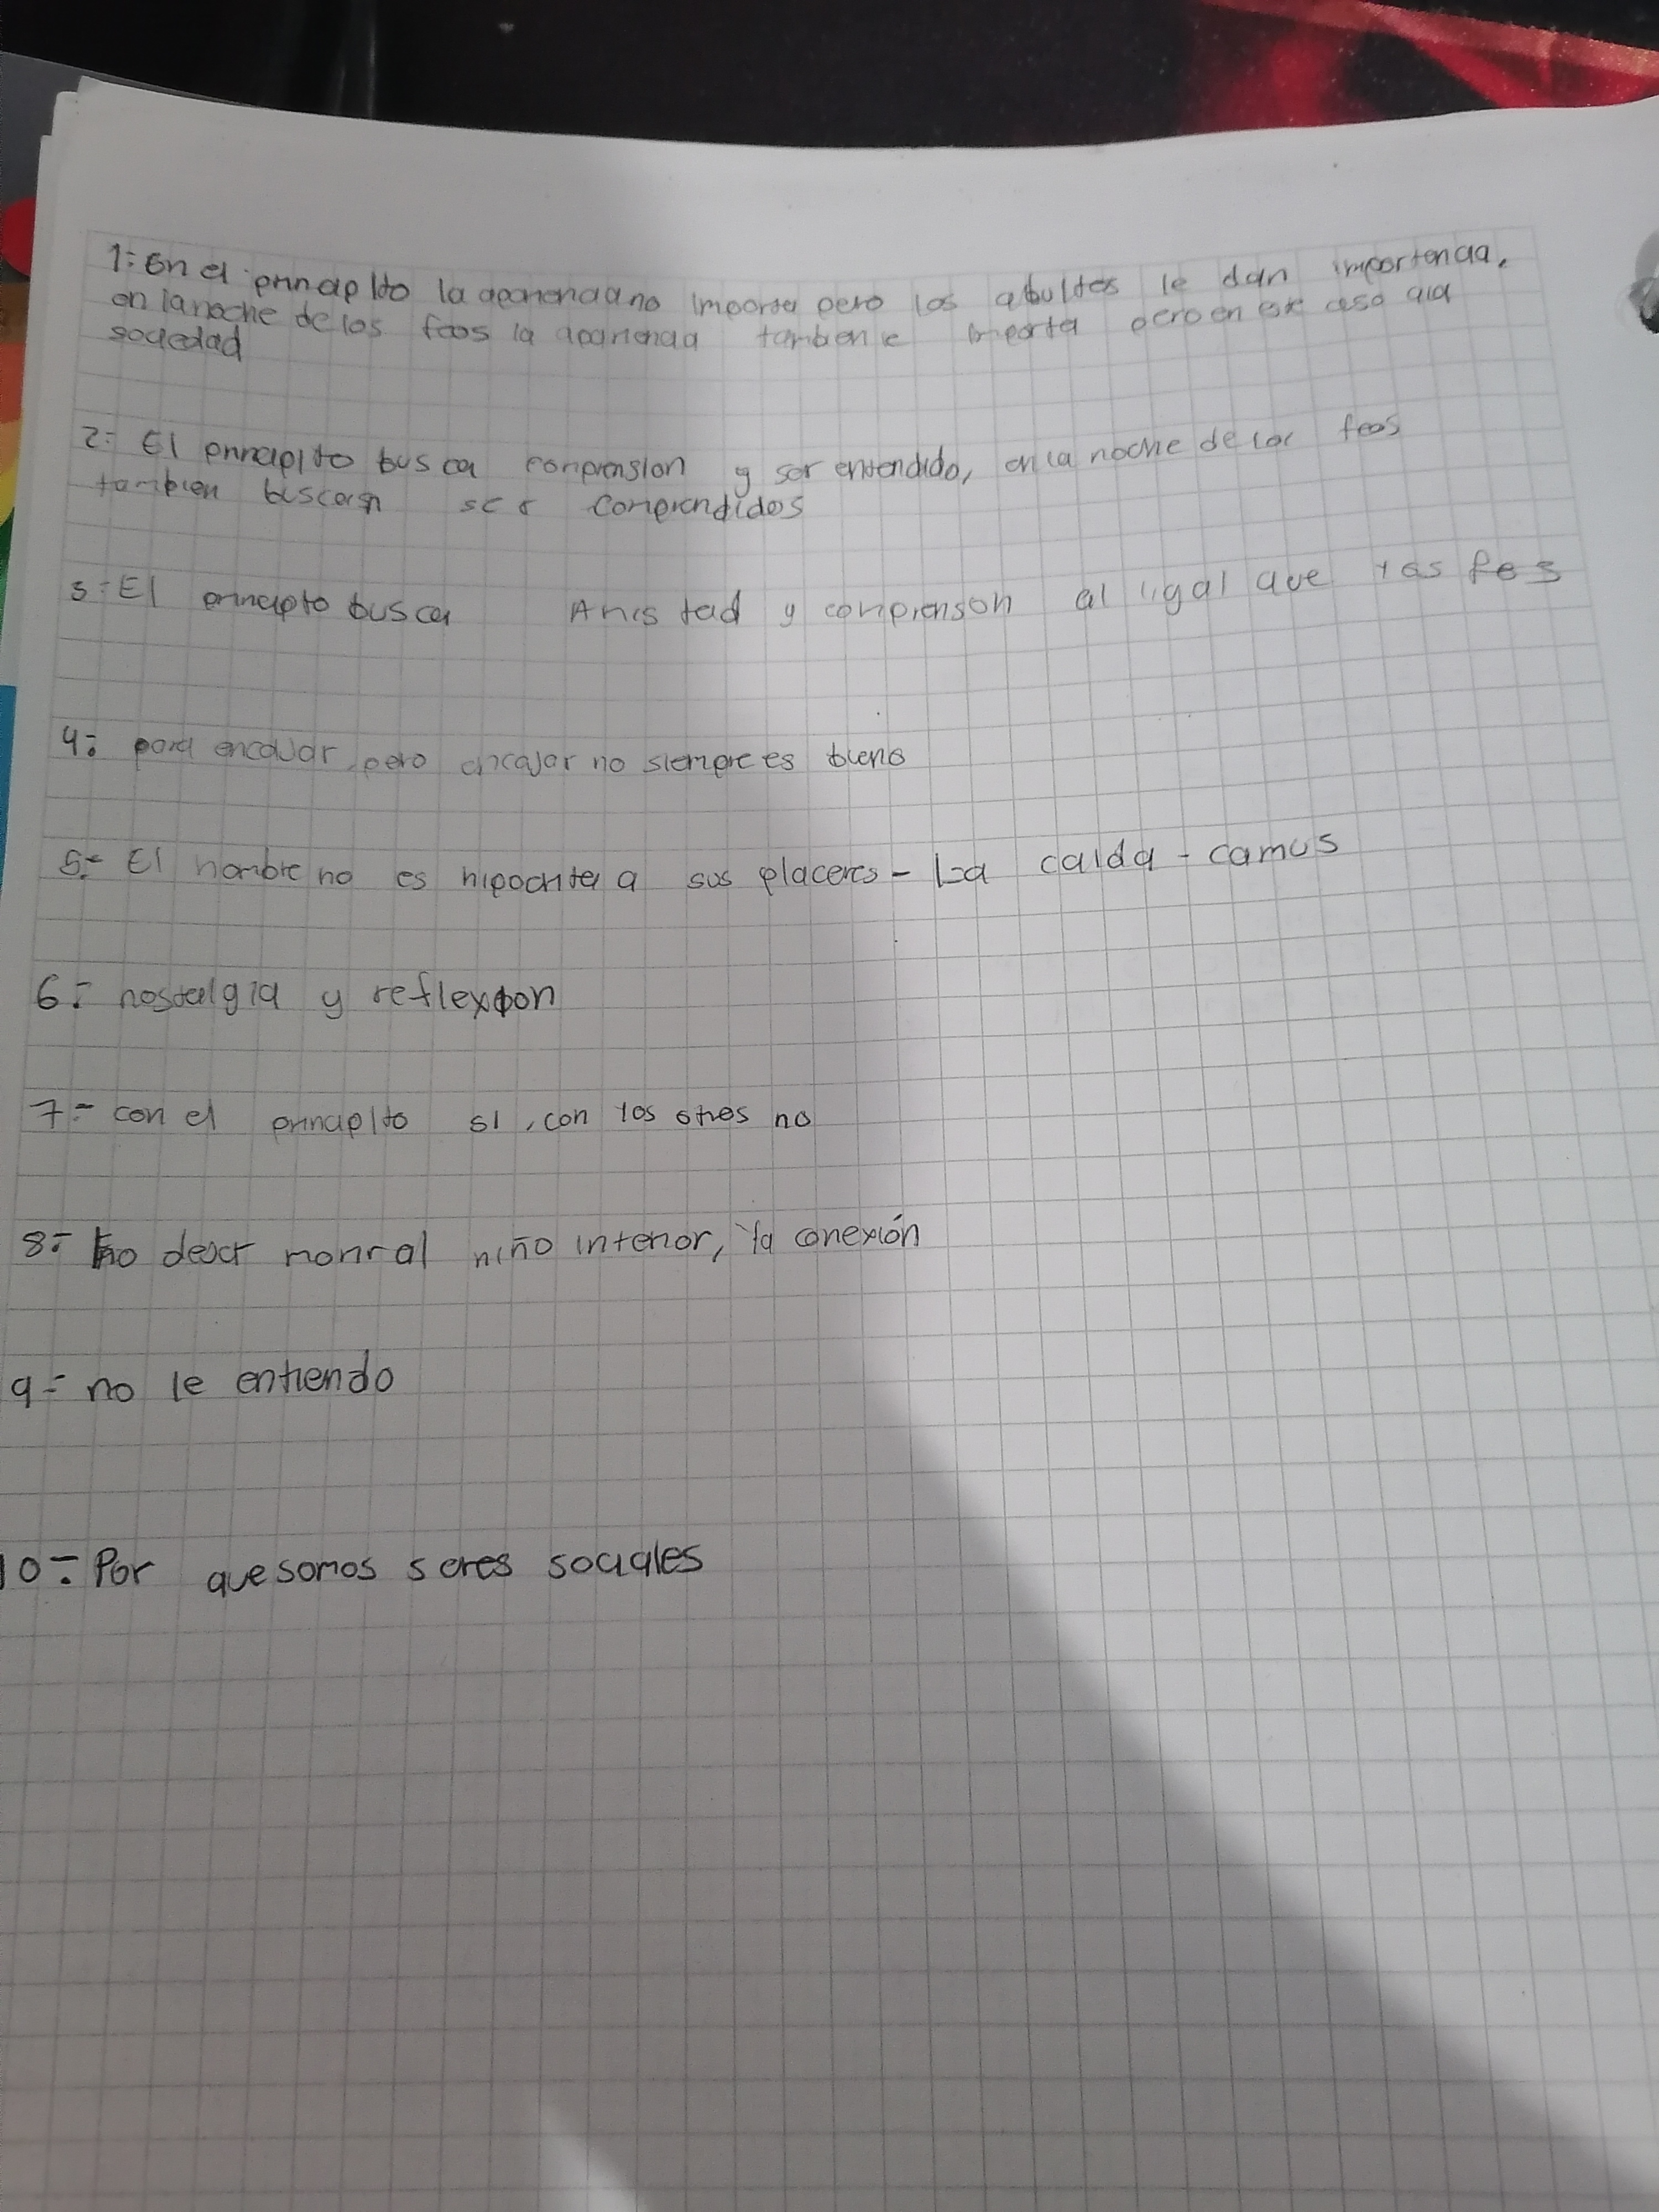 1:- En el principito la apariencia no importa pero los abultos le dan importancia.
en la noche de los feos la apariencia tambien le importa pero en este caso a la
sociedad
2:- El principito busca conprension y ser entendido, en la noche de los feos
tambien buscan ser comprendidos
3:- El principto busca Amistad y conprenson al igal que los feos
4:- para encajar, pero encajar no siempre es bueno
5:- El hombre no es hipocrita a sus placeres - La caida - camus
6:- nostalgia y reflexion
7:- con el principito si, con los otros no
8:- no dejar monral niño interior, la conexión
9:- no le entiendo
10:- Por que somos seres sociales